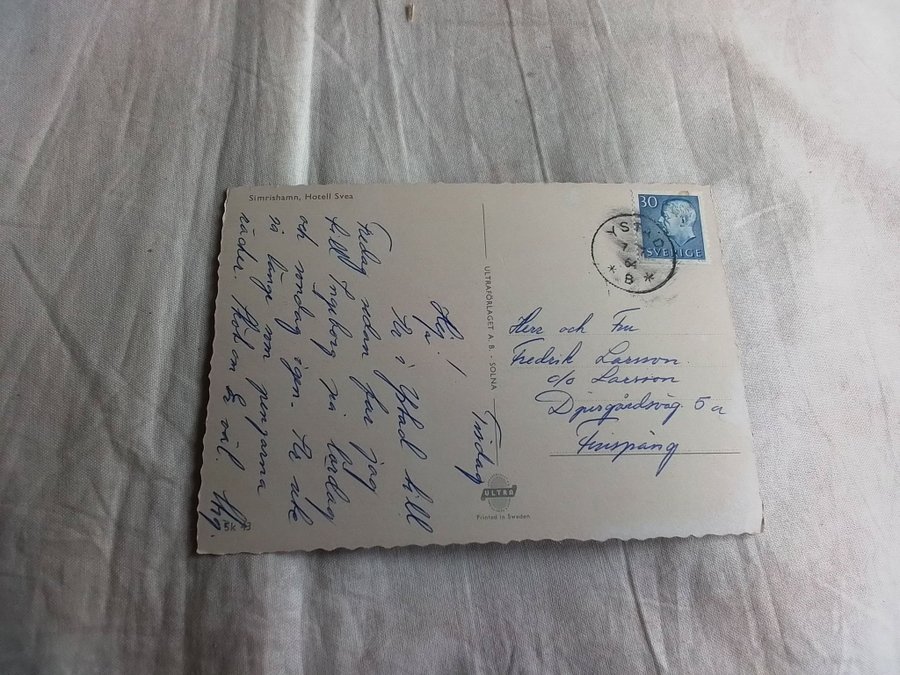 Simrishamn, Hotell Svea
Tisdag
Hej!
Är i Ystad till
Fredag sedan far jag
till Ingeborg på lördag
och söndag igen.
så länge som pengarna
räcker
5K 43
ULTRAFÖRLAGET A. B. - SOLNA
ULTRA
Printed in Sweden
30
SVERIGE
YSTAD
* 8 *
Herr och Fru
Fredrik Larsson
c/o Larsson
Djurgårdsväg. 5 a
Finspång